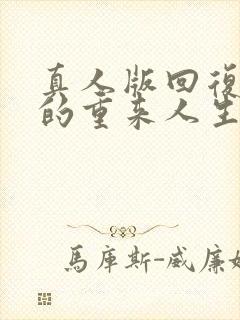 真人版回復
的重来人生
馬庫斯-威廉